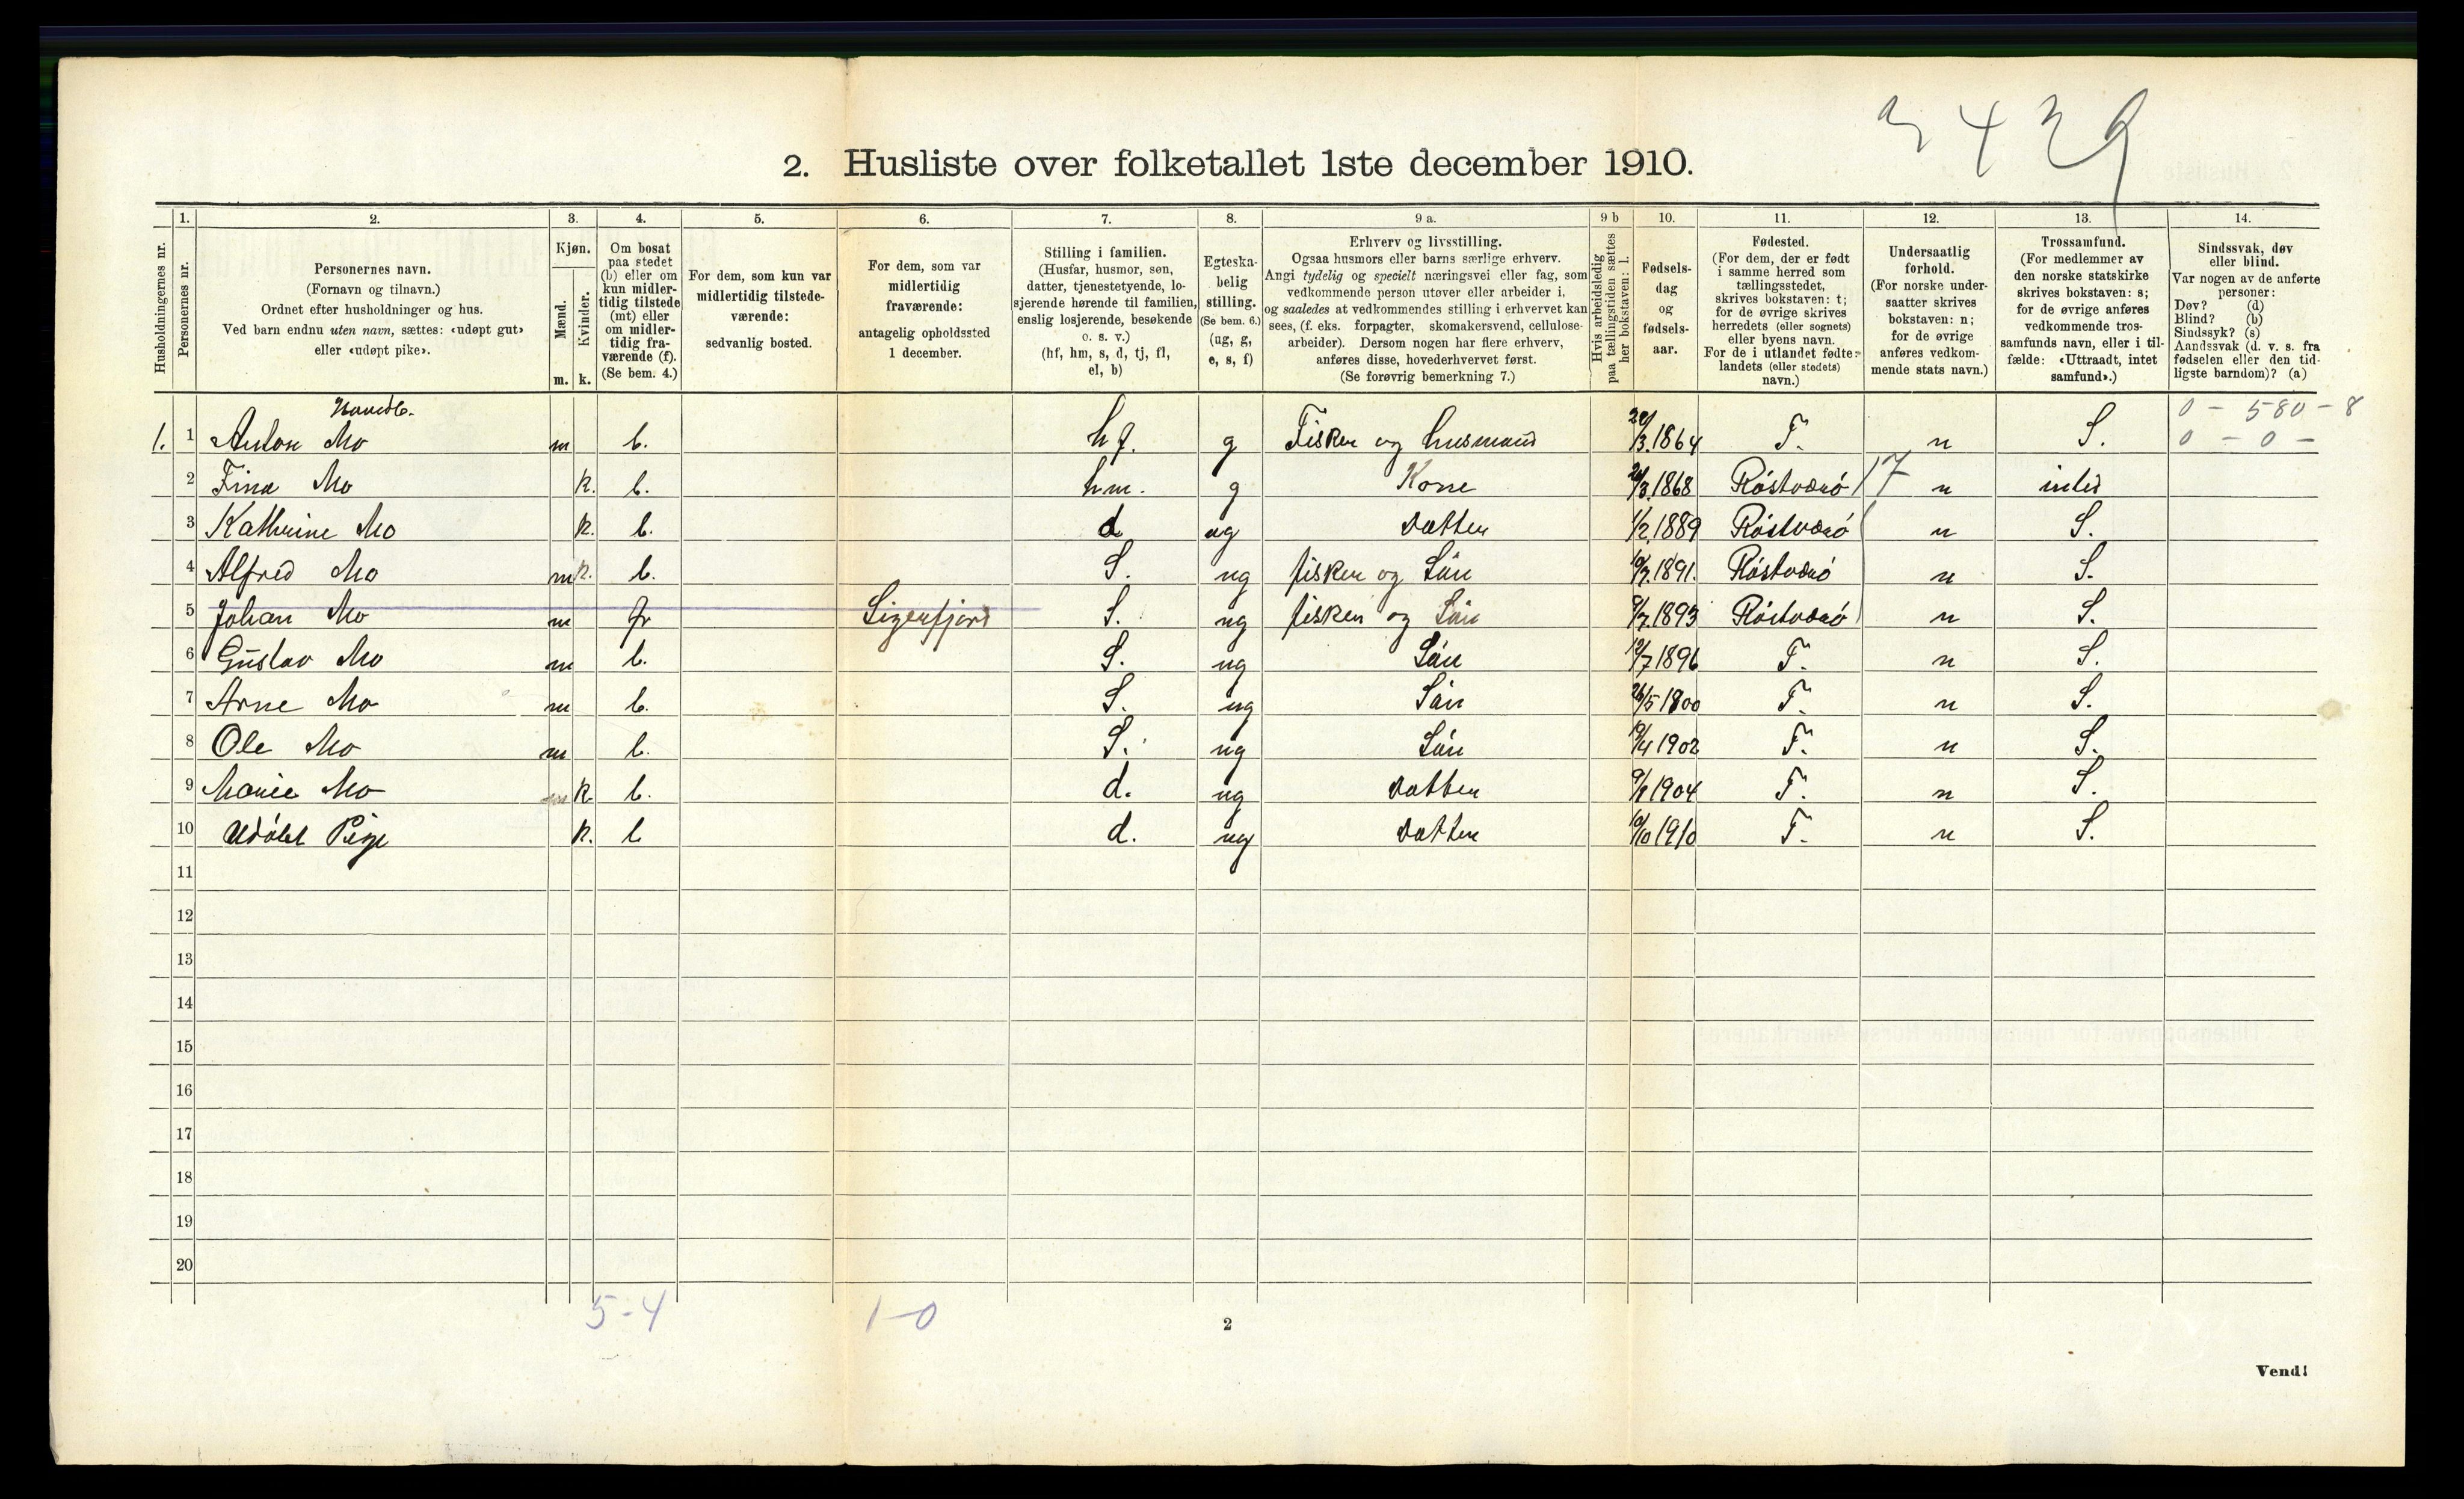 2439
2. Husliste over folketallet 1ste december 1910.
Husholdningernes nr.
1. Personernes nr.
2. Personernes navn. (Fornavn og tilnavn.) Ordnet efter husholdninger og hus. Ved barn endnu uten navn, sættes: «udøpt gut» eller «udøpt pike».
3. Kjøn. Mænd. m. Kvinder. k.
4. Om bosat paa stedet (b) eller om kun midlertidig tilstede (mt) eller om midlertidig fraværende (f). (Se bem. 4.)
5. For dem, som kun var midlertidig tilstedeværende: sedvanlig bosted.
6. For dem, som var midlertidig fraværende: antagelig opholdssted 1 december.
7. Stilling i familien. (Husfar, husmor, søn, datter, tjenestetyende, losjerende hørende til familien, enslig losjerende, besøkende o. s. v.) (hf, hm, s, d, tj, fl, el, b)
8. Egteskabelig stilling. (Se bem. 6.) (ug, g, e, s, f)
9 a. Erhverv og livsstilling. Ogsaa husmors eller barns særlige erhverv. Angi tydelig og specielt næringsvei eller fag, som vedkommende person utøver eller arbeider i, og saaledes at vedkommendes stilling i erhvervet kan sees, (f. eks. forpagter, skomakersvend, cellulosearbeider). Dersom nogen har flere erhverv, anføres disse, hovederhvervet først. (Se forøvrig bemerkning 7.)
9 b Hvis arbeidsledig paa tællingstiden sættes her bokstaven: l.
10. Fødselsdag og fødselsaar.
11. Fødested. (For dem, der er født i samme herred som tællingsstedet, skrives bokstaven: t; for de øvrige skrives herredets (eller sognets) eller byens navn. For de i utlandet fødte: landets (eller stedets) navn.)
12. Undersaatlig forhold. (For norske undersaatter skrives bokstaven: n; for de øvrige anføres vedkommende stats navn.)
13. Trossamfund. (For medlemmer av den norske statskirke skrives bokstaven: s; for de øvrige anføres vedkommende trossamfunds navn, eller i tilfælde: «Uttraadt, intet samfund».)
14. Sindssvak, døv eller blind. Var nogen av de anførte personer: Døv? (d) Blind? (b) Sindssyk? (s) Aandssvak (d. v. s. fra fødselen eller den tidligste barndom)? (a)
0 - 580 - 8
0 - 0 -
1. 1 Anton Mo m b. hf. g Fisker og husmand 1864 T. n S.
2 Fina Mo k. b. hm. g Kone 1868 Röstværö 17 n intet
3 Kathrine Mo k. b. d ug datter 1/2 1889 Röstværö n S.
4 Alfred Mo m k. b. S. ug fisker og Sön 1891. Röstværö n S.
5 Johan Mo m fr Sigerfjord S. ug fisker og Sön 1893 Röstværö n S.
6 Gustav Mo m b. S. ug Sön 1896 T. n S.
7 Arne Mo m b. S. ug Sön 26/5 1900 T. n S.
8 Ole Mo m b. S. ug Sön 1902 T. n S.
9 Marie Mo k. b. d. ug datter 1904 T. n S.
10 Udöbt Pige k. b d. ug datter 1910 T. n S.
11
12
13
14
15
16
17
18
19
20
5-4 1-0
2
Vend!